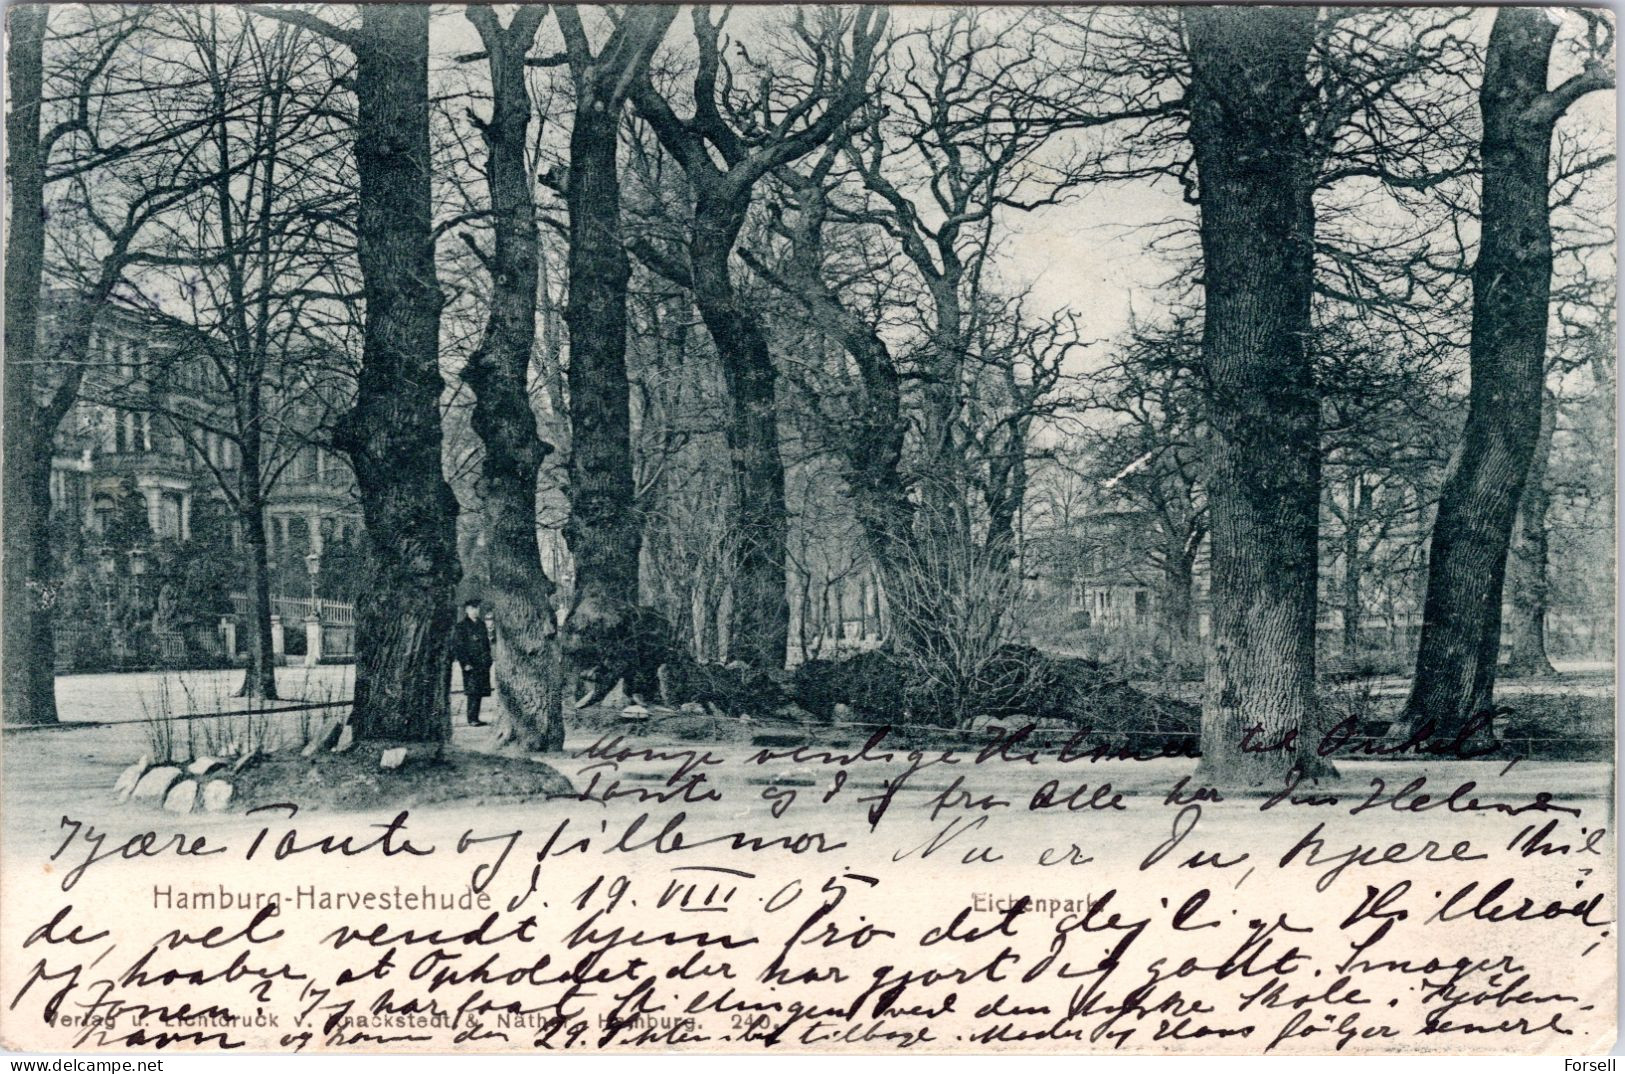 Mange venlige Hilsner til Onkel,
Tante og D j fra Alle her Din Helene
Kjære Tante og lillemor Nu er Du, kjære Hil
Hamburg-Harvestehude d. 19. VIII. 05 Eichenpark
de, vel vendt hjem fra det dejlige Hilleröd,
jeg haaber, at Opholdet der har gjort Dig godt. Smager
Jeg har faaet Stillingen ved den tyske Skole i Kjöben-
Verlag u. Lichtdruck v. Knackstedt & Näther, Hamburg. 240.
havn og kommer d. 29. Sept. tilbage. Moder og Hans fölger senere.
Forsell